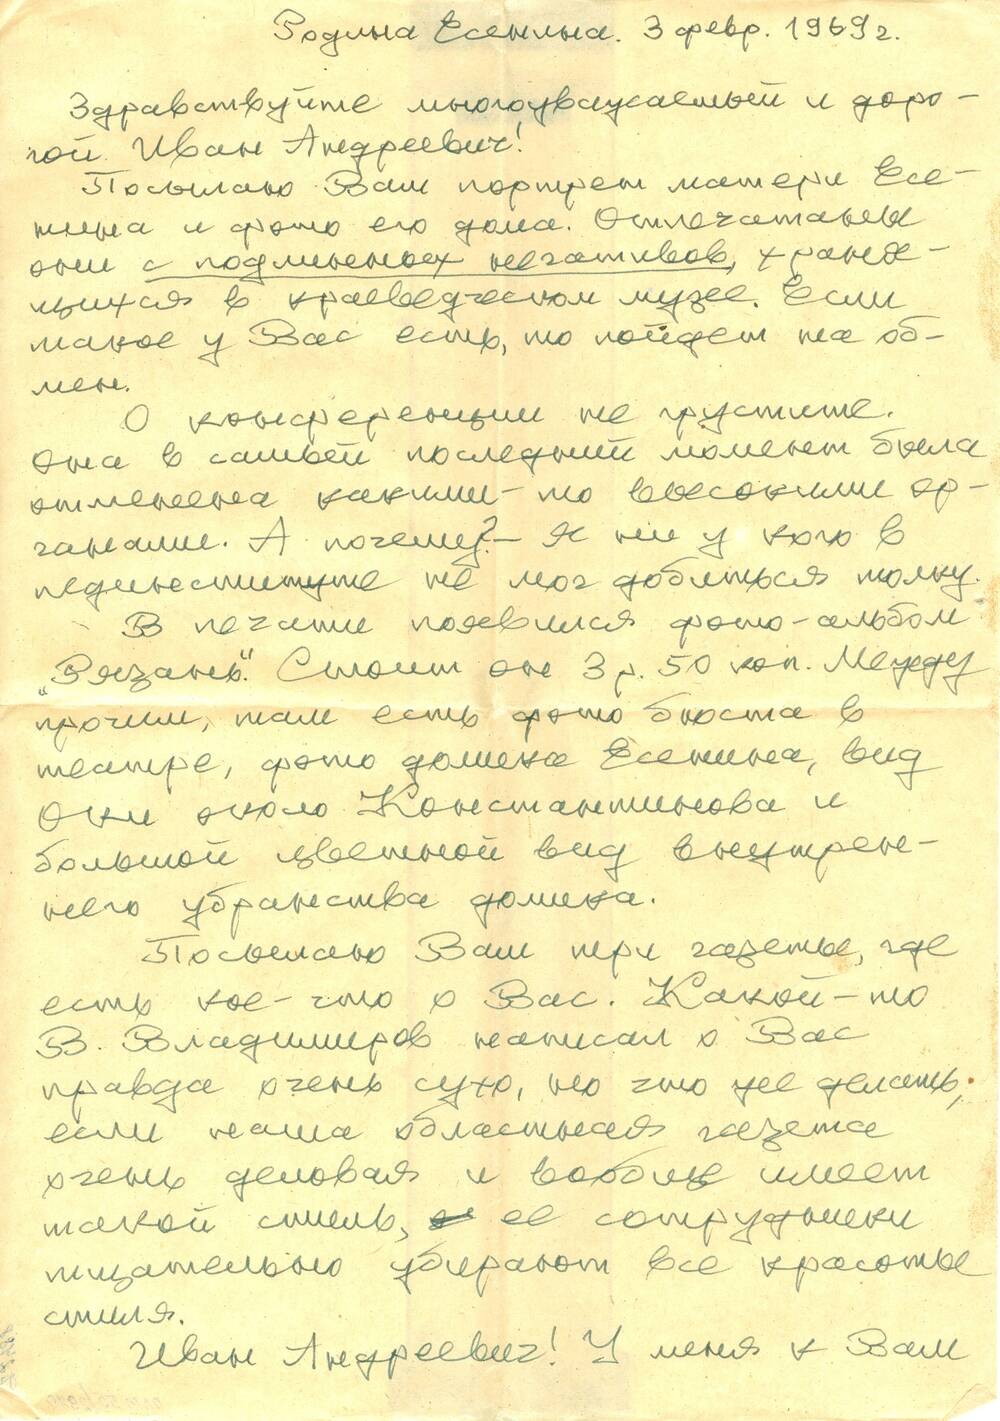 Родина Есенина. 3 февр. 1969 г.
Здравствуйте многоуважаемый и доро-
гой Иван Андреевич!
Посылаю Вам портрет матери Есе-
нина и фото его дома. Отпечатаны
они с подлинных негативов, храня-
щихся в краеведческом музее. Если
такое у Вас есть, то пойдет на об-
мен.
О конференции не грустите.
Она в самый последний момент была
отменена какими-то высокими ор-
ганами. А почему? - Я ни у кого в
пединституте не мог добиться толку.
В печати появился фото-альбом
"Рязань". Стоит он 3 р. 50 коп. Между
прочим, там есть фото бюста в
театре, фото домика Есенина, вид
Оки около Константинова и
большой цветной вид внутрен-
него убранства домика.
Посылаю Вам три газеты, где
есть кое-что о Вас. Какой-то
В. Владимиров написал о Вас
правда очень сухо, но что же делать,
если наша областная газета
очень деловая и вообще имеет
такой стиль, ее сотрудники
тщательно убирают все красоты
стиля.
Иван Андреевич! У меня к Вам